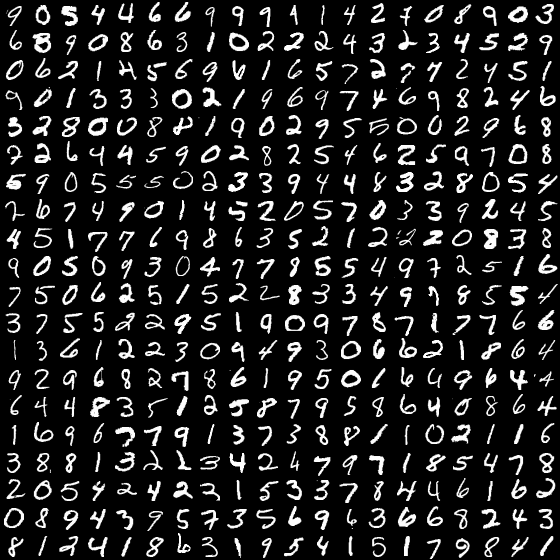 9 0 5 4 4 6 6 9 9 9 1 1 4 2 7 0 8 9 0 3
6 8 9 0 8 6 3 1 0 2 2 2 4 3 2 3 4 5 2 9
0 6 2 1 4 5 6 9 6 1 6 5 7 2 7 7 2 4 5 1
9 0 1 3 3 3 0 2 1 9 6 9 7 4 6 9 8 2 4 6
3 2 8 0 0 8 8 1 9 0 2 9 5 5 0 0 2 9 6 8
7 2 6 4 4 5 9 0 2 8 2 5 4 6 2 5 9 7 0 8
5 9 0 5 5 5 0 2 3 3 9 4 4 8 3 2 8 0 5 4
2 6 7 4 9 0 1 4 5 2 0 5 7 0 3 3 9 2 4 5
4 5 1 7 7 6 9 8 6 3 5 2 1 2 2 2 0 8 3 8
9 0 5 0 9 3 0 4 7 7 8 5 5 4 9 7 2 5 1 6
7 5 0 6 2 5 1 5 2 2 8 3 3 4 9 9 8 5 5 4
3 7 5 5 2 2 9 5 1 9 0 9 7 8 7 1 7 7 6 6
1 3 6 1 2 2 3 0 9 4 9 3 0 6 6 2 1 8 6 4
9 2 9 6 8 2 7 8 6 1 9 5 0 1 6 4 9 6 4 4
6 4 4 8 3 5 1 2 5 8 7 9 5 8 6 4 0 8 6 4
1 6 9 6 7 7 9 1 3 7 3 8 8 1 1 0 2 1 1 6
3 8 8 1 3 2 2 3 4 2 4 7 9 7 1 8 5 4 7 8
2 0 5 4 2 4 2 3 1 5 3 3 7 8 4 4 6 1 6 2
0 8 9 4 3 9 5 7 3 5 6 9 6 3 6 6 8 2 4 3
8 1 2 4 1 8 6 3 1 9 5 4 1 5 1 7 9 8 4 1